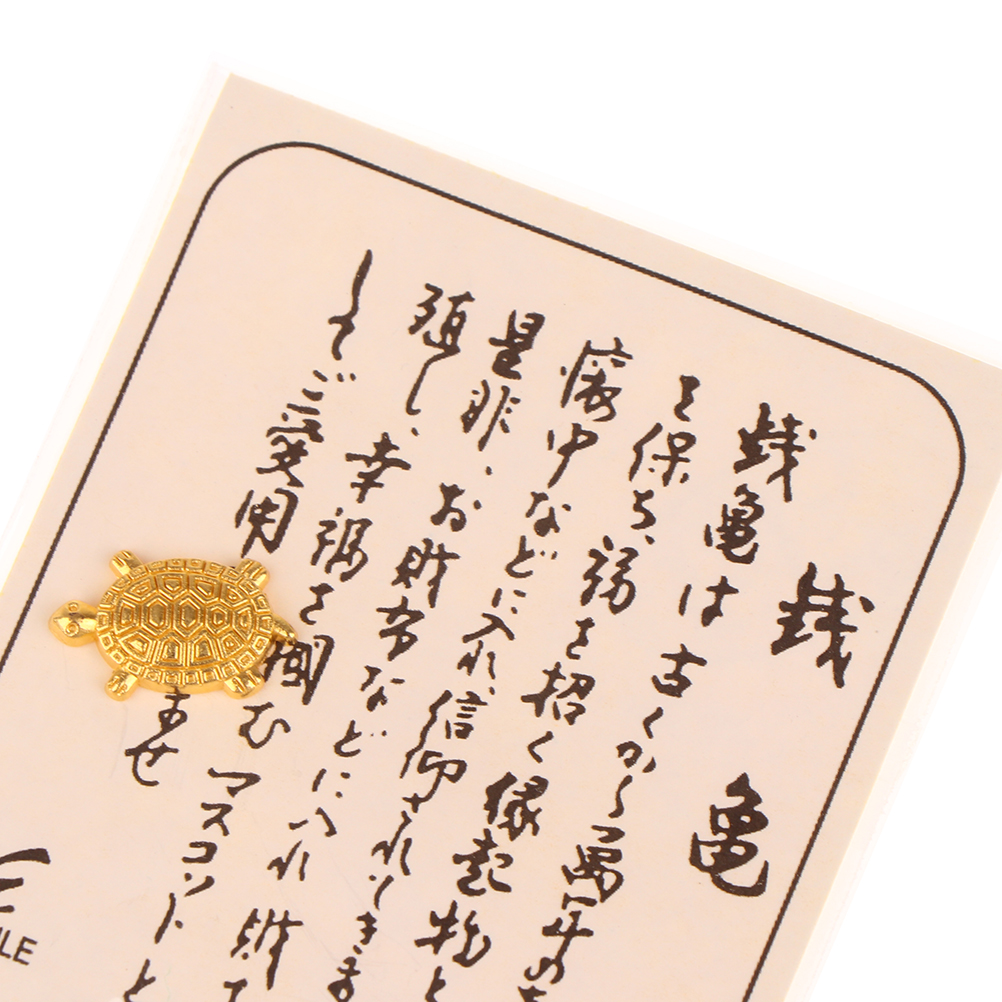 銭亀
銭亀は古くから萬年の
を保ち、福を招く縁起物と
懐中などに入れ、信仰されてきま
是非、お財布などに入れ財を
殖し、幸福を掴むマスコットと
してご愛用ませ
LE